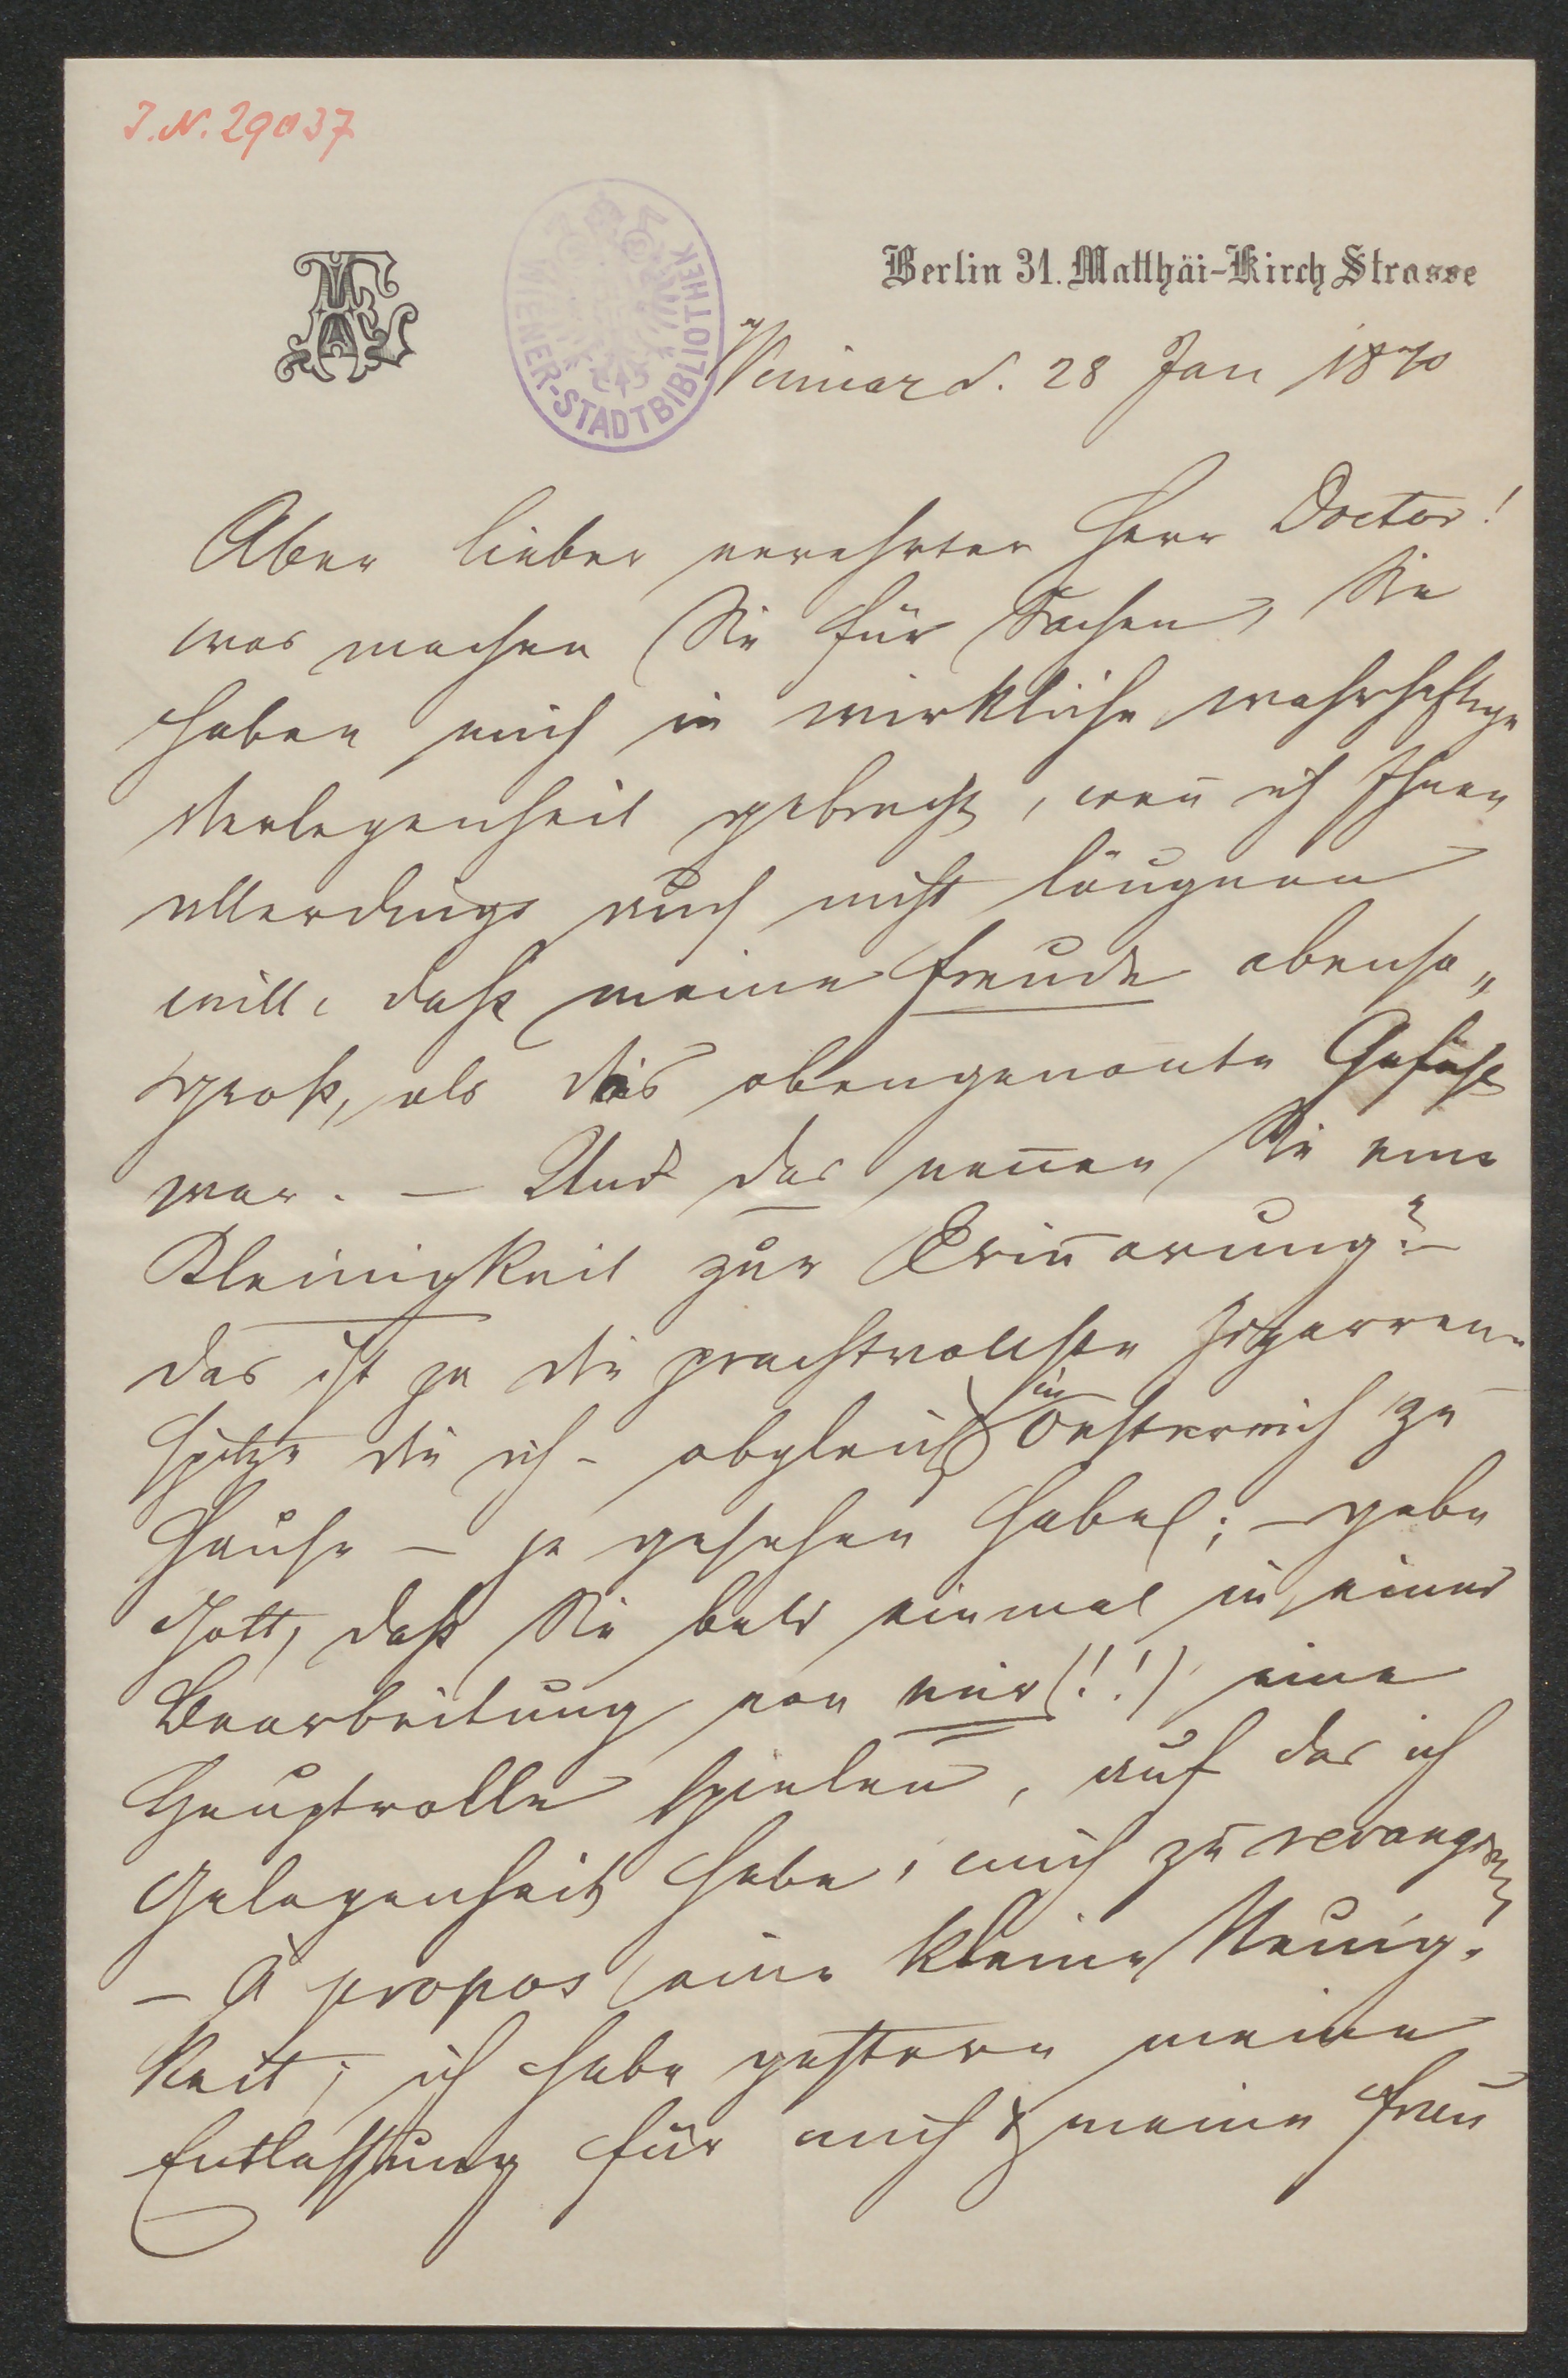 I.N. 29037
WIENER-STADTBIBLIOTHEK
Berlin 31. Matthäi-Kirch Strasse
Weimar d. 28 Jan 1870
Aber lieber verehrter Herr Doctor!
was machen Sie für Sachen, Sie
haben mich in wirkliche wahrhaftige
Verlegenheit gebracht, wen̄ ich Ihnen
allerdings auch nicht läugnen
will, daß meine Freude ebenso„
groß, als das obengenan̄te Gefühl
war. — Und das nen̄en Sie eine
Kleinigkeit zur Erin̄erung? —
das ist ja die prachtvollste Zigarren-
spitze die ich - obgleich in Oesterreich zu
Hause — je gesehen habe; — gebe
Gott, daß Sie bald einmal in einer
Bearbeitung von mir (!!) eine
Hauptrolle spielen, auf das ich
Gelegenheit habe, mich zu revangiren
— À propos eine kleine Neuig-
keit; ich habe gestern meine
Entlassung für mich & meine Frau